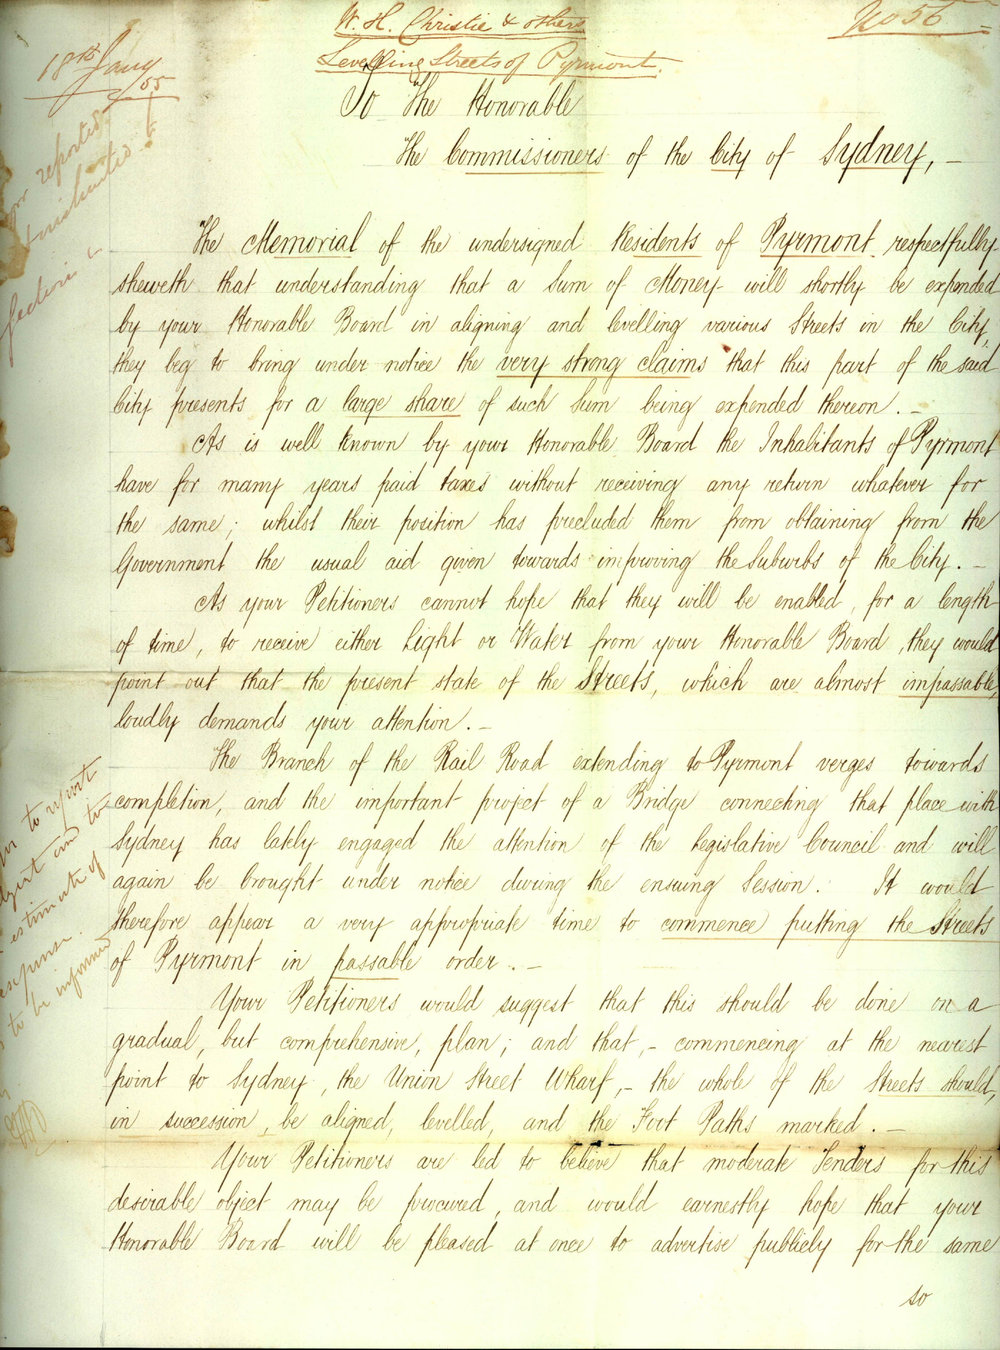 W. H. Christie & others
No 56
Levelling Streets of Pyrmont.
18th Jany
/55
To The Honorable
The Commissioners of the City of Sydney, -
The Memorial of the undersigned Residents of Pyrmont respectfully
sheweth that understanding that a Sum of Money will shortly be expended
by your Honorable Board in aligning and levelling various Streets in the City,
they beg to bring under notice the very strong claims that this part of the said
City presents for a large share of such Sum being expended thereon. -
As is well known by your Honorable Board the Inhabitants of Pyrmont
have for many years paid taxes without receiving any return whatever for
the same; whilst their position has precluded them from obtaining from the
Government the usual aid given towards improving the Suburbs of the City. -
As your Petitioners cannot hope that they will be enabled, for a length
of time, to receive either Light or Water from your Honorable Board, they would
point out that the present state of the Streets, which are almost impassable,
loudly demands your attention. -
The Branch of the Rail Road extending to Pyrmont verges towards
completion, and the important project of a Bridge connecting that place with
Sydney has lately engaged the attention of the Legislative Council and will
again be brought under notice during the ensuing Session. It would
therefore appear a very appropriate time to commence putting the Streets
of Pyrmont in passable order. -
Your Petitioners would suggest that this should be done on a
gradual, but comprehensive, plan; and that, - commencing at the nearest
point to Sydney, the Union Street Wharf, - the whole of the Streets should,
in succession, be aligned, levelled, and the Foot Paths marked. -
Your Petitioners are led to believe that moderate Tenders for this
desirable object may be procured, and would earnestly hope that your
Honorable Board will be pleased at once to advertise publicly for the same
so
reported
to report
and to
estimate of
expense.
to be informed